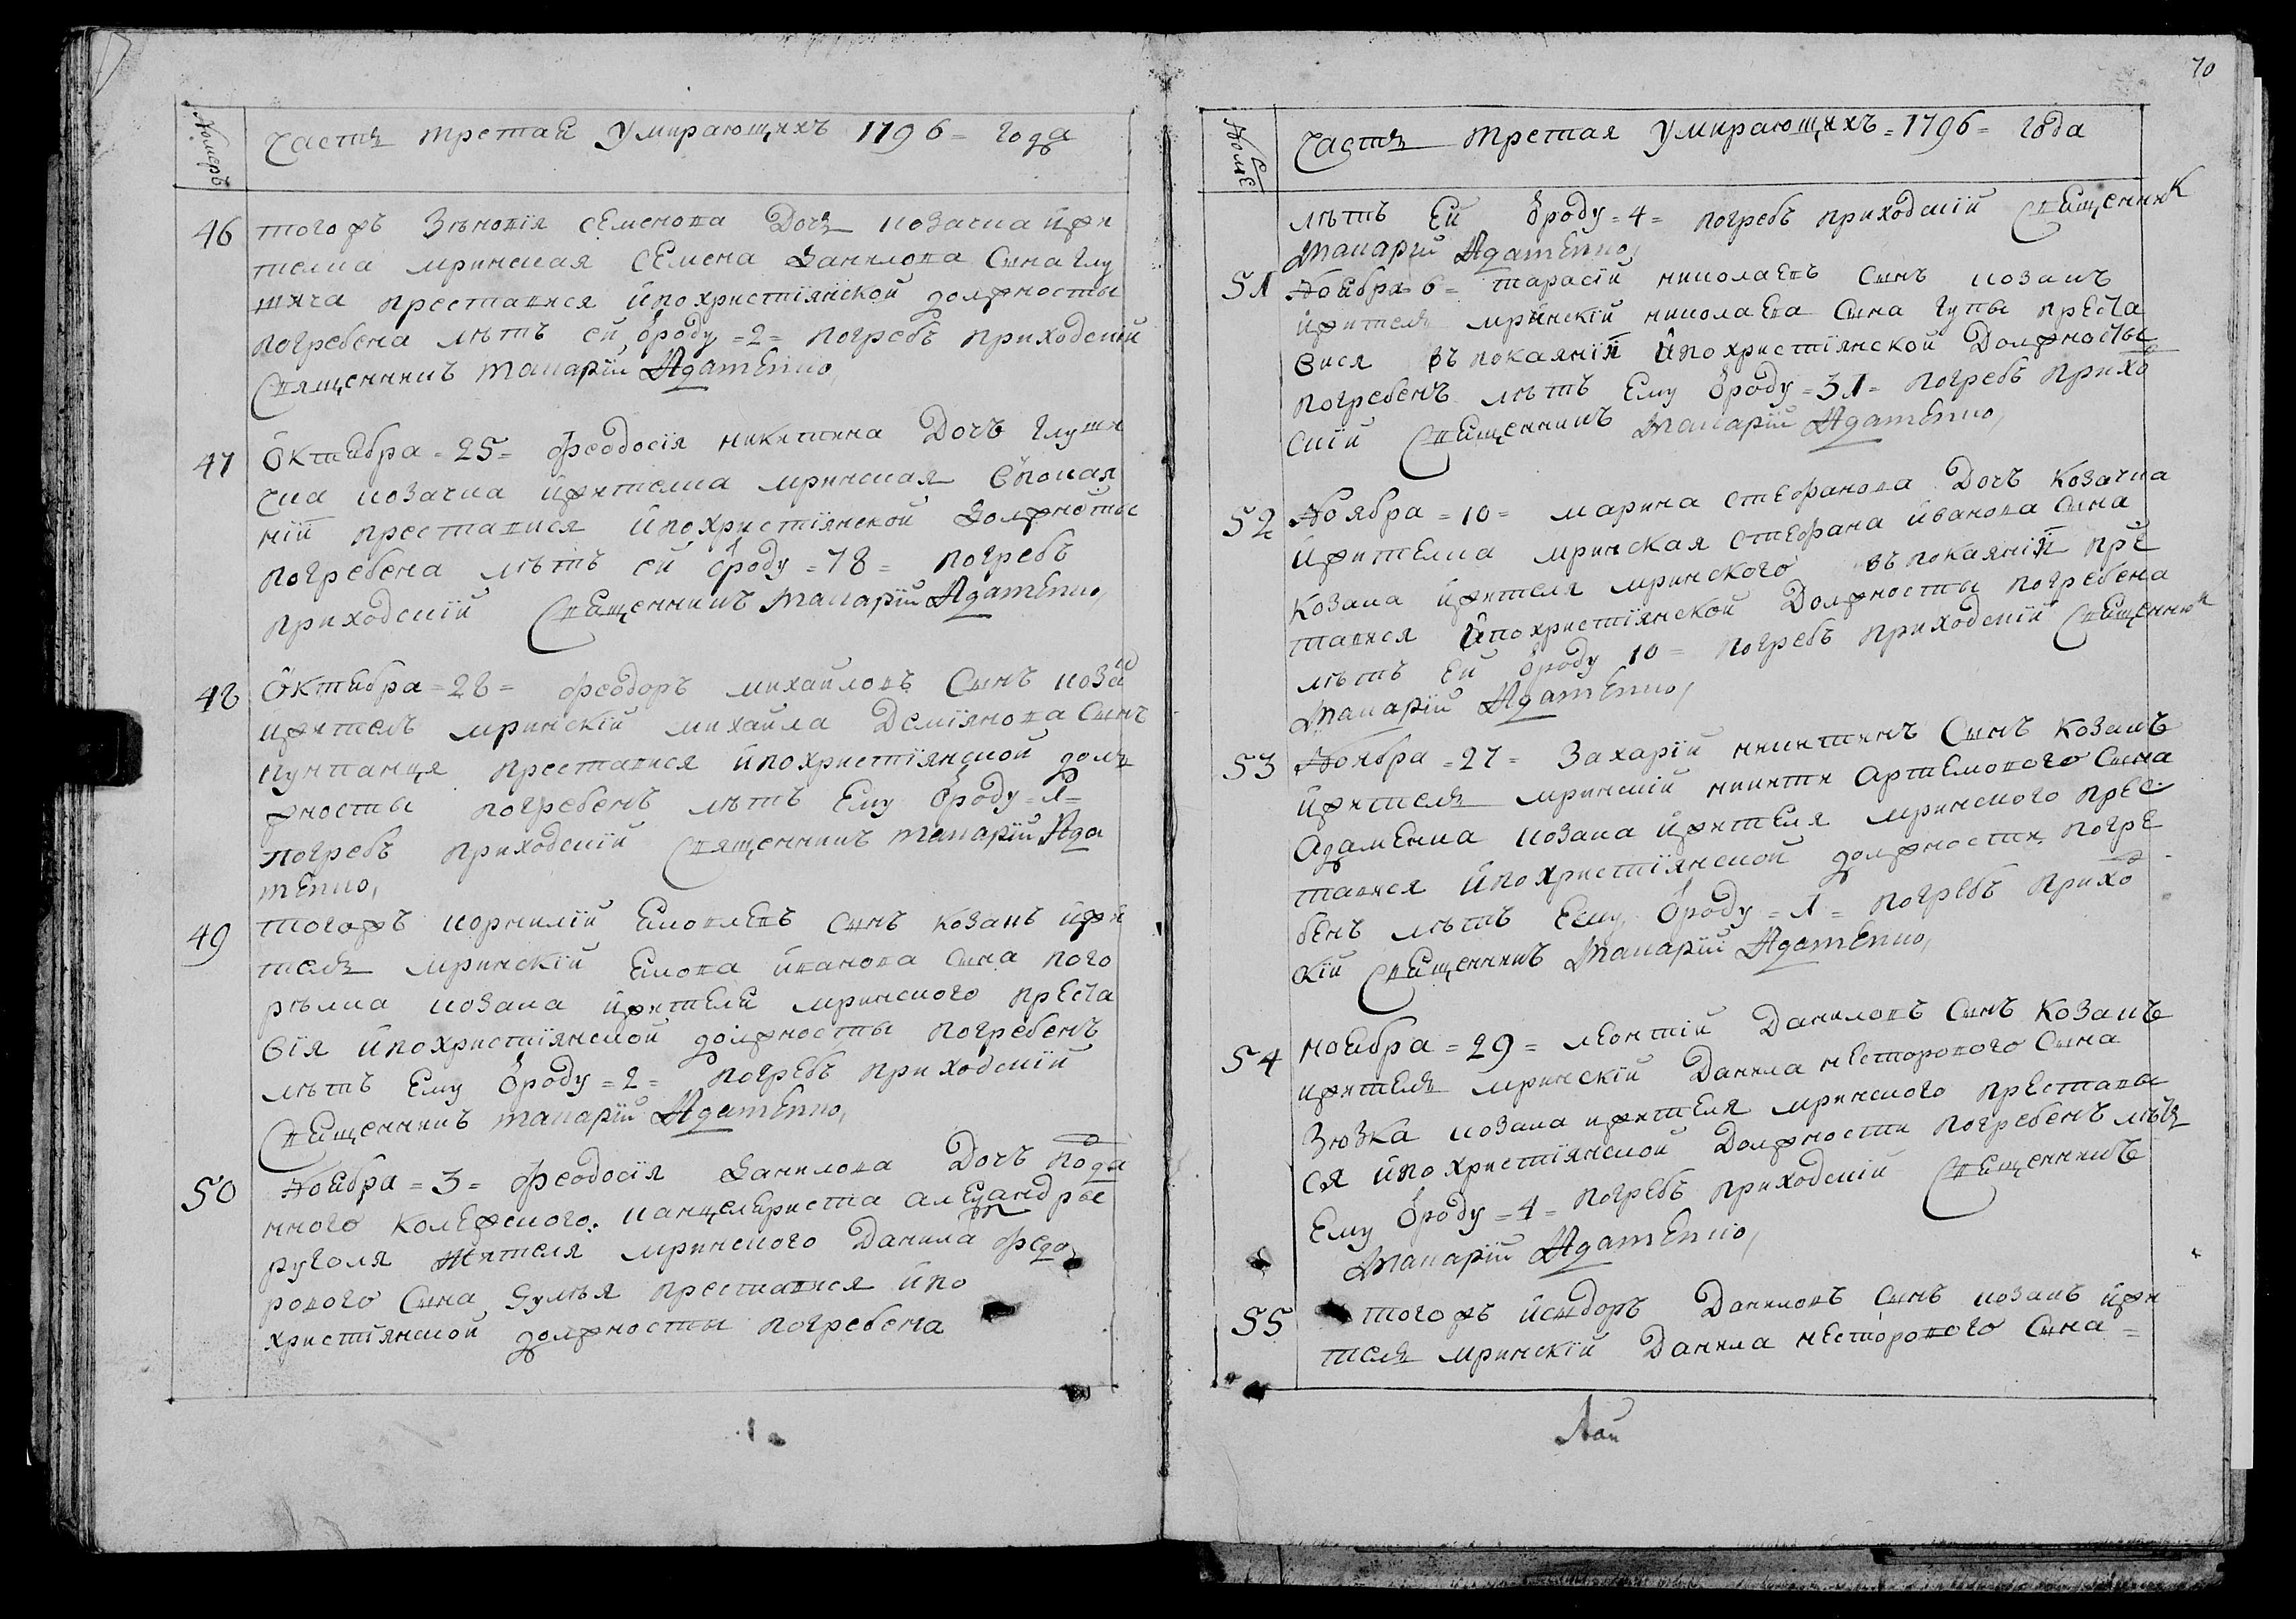 Номеръ
Часть третая умирающихъ 1796 = года
46 тогожъ Зѣновія семенова дочь козачка ижи
телка мринская семена данилова сина глу
шича преставися ипохристіянской должносты
погребена лѣтъ ей ѿроду =2= погребъ приходскій
священникъ макарій Адаменко,
47 Октября =25= феодосія никитина дочъ глуши
чка козачка ижителка мринская впокая
ній преставися ипохристіянской должносты
погребена лѣтъ ей ѿроду =78= погребъ
приходскій священникъ макарій Адаменко,
48 Октября =28= феодоръ михайловъ синъ коза
ижитель мринскій михайла Деміянова синъ
преставися ипохристіянской дол
жносты погребенъ лѣтъ Ему ѿроду =1=
погребъ приходскій священникъ макарій Ада
менко,
49 тогожъ корнилій синъ козакъ ижи
тель мринскій иванова сина пого
рѣлка козака ижителя мринского преста
вія ипохристіянской должносты погребенъ
лѣтъ Ему ѿроду =2= погребъ приходскій
священникъ макарій Адаменко,
50 Ноября =3= феодосія данилова дочъ пода
нного колежского канцеляриста алеѯандры
руголя жителя мринского Данила федо
рового сина преставися ипо
христіянской должносты погребена
70
Номе
Часть третая умирающихъ =1796= года
лѣтъ ей ѿроду =4= погребъ приходскій священник
макарій Адаменко,
51 Ноября 6= тарасій николаевъ синъ козакъ
ижитель мринскій николаева сина гупы преста
вися въ покаяній ипохристіянской Должносты
погребенъ лѣтъ Ему ѿроду =31= погребъ прихо
скій священникъ макарій Адаменко,
52 Ноября =10= марина стефанова Дочъ Козачка
ижителка мринская стефана иванова сина
Козака ижителя мринского въ покаяній пре
тавися ипохристіянской Должносты погребена
лѣтъ ей ѿроду 10= погребъ приходскій священник
макарій Адаменко,
53 Ноября =27= Захарій никитинъ синъ козакъ
ижитель мринскій никити Артемового сина
Адаменка козака ижителя мринского прес
тавися ипохристіянской должности погре
бенъ лѣтъ Ему ѿроду =1= погребъ прихо
скій священникъ макарій Адаменко,
54 ноября =29= леонтій Даниловъ синъ козакъ
ижитель мринскій Данила несторового сина
Зюзка козака ижителя мринского преставы
ся ипохристіянской Должности погребенъ лѣть
Ему ѿроду =4= погребъ приходскій священникъ
макарій Адаменко,
55 тогожъ исидоръ Даниловъ синъ козакъ ижи
тель мринскій Данила несторового сина =